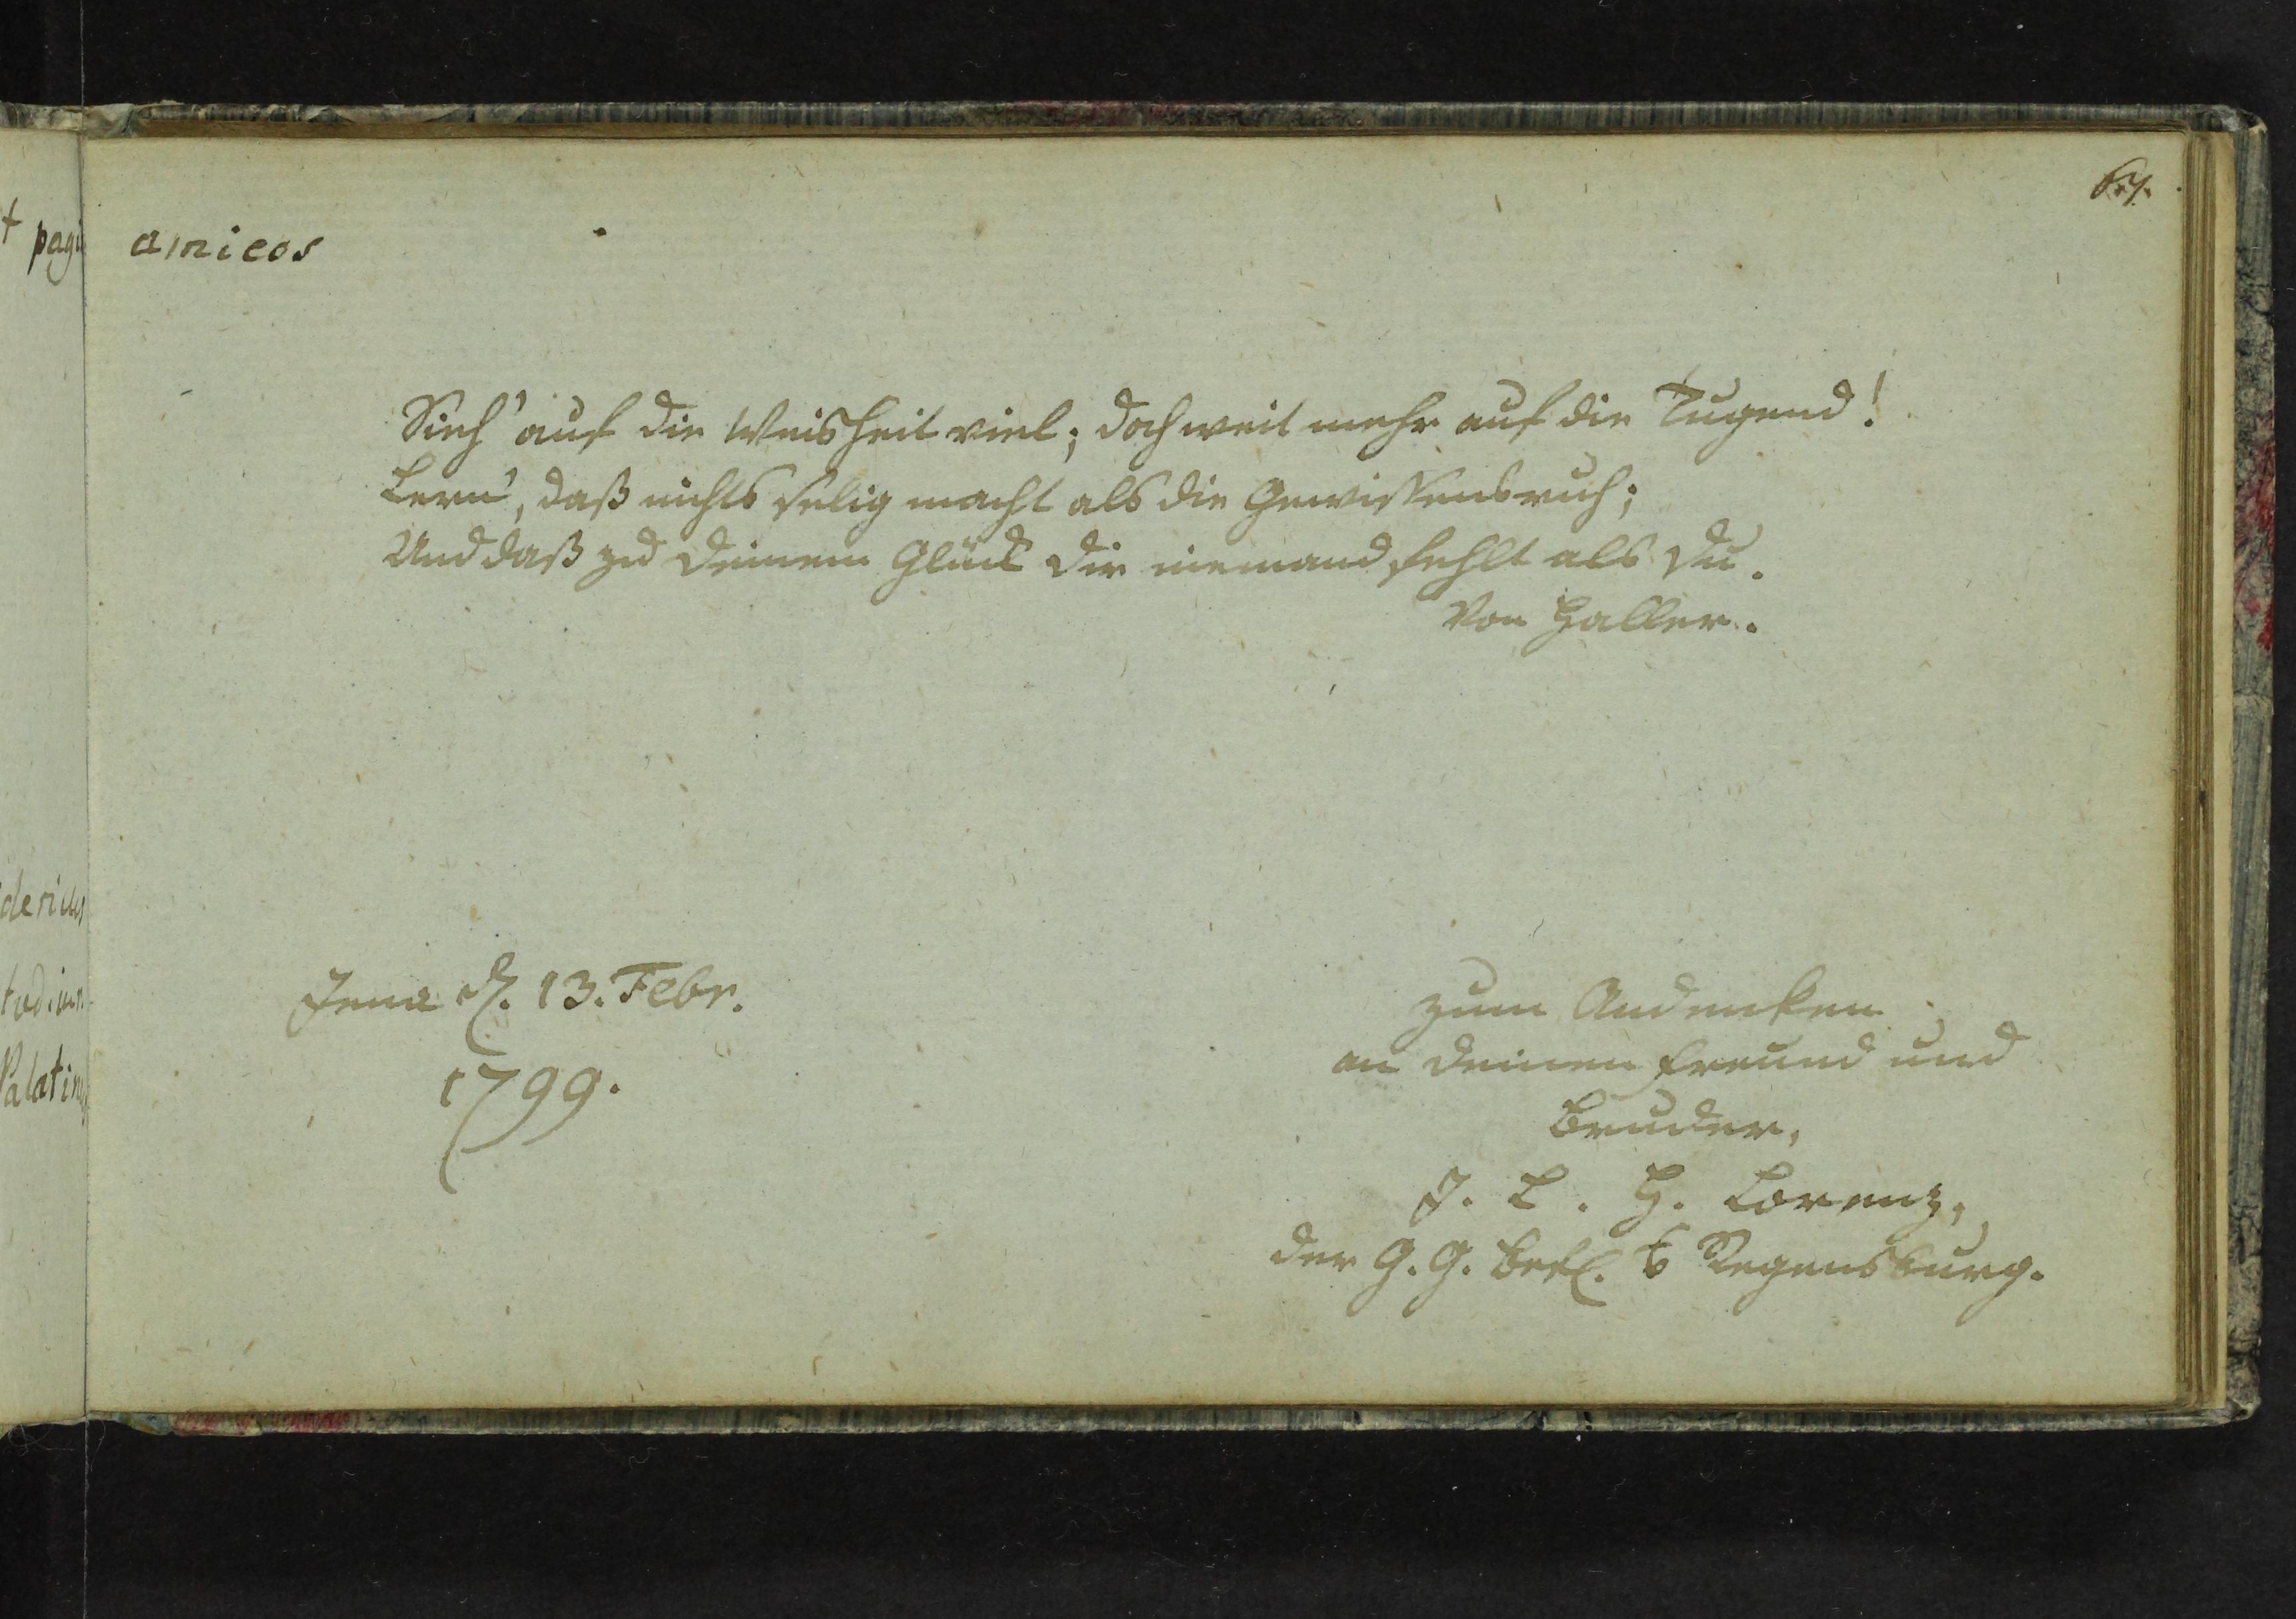 67.
amicos
Sieh' auf die Weisheit viel; doch weit mehr auf die Tugend!
Lern', daß nichts selig macht als die Gewissensruh;
Und daß zu Deinem Glück dir niemand fehlt als Du.
Von Haller.
Jena d. 13. Febr.
1799.
zum Andenken
an Deinen Freund und
Bruder,
J. L. H. Lorenz,
der G. G. Befl. Regensburg.
t pagi
dericus
tud. iur.
Palatinus